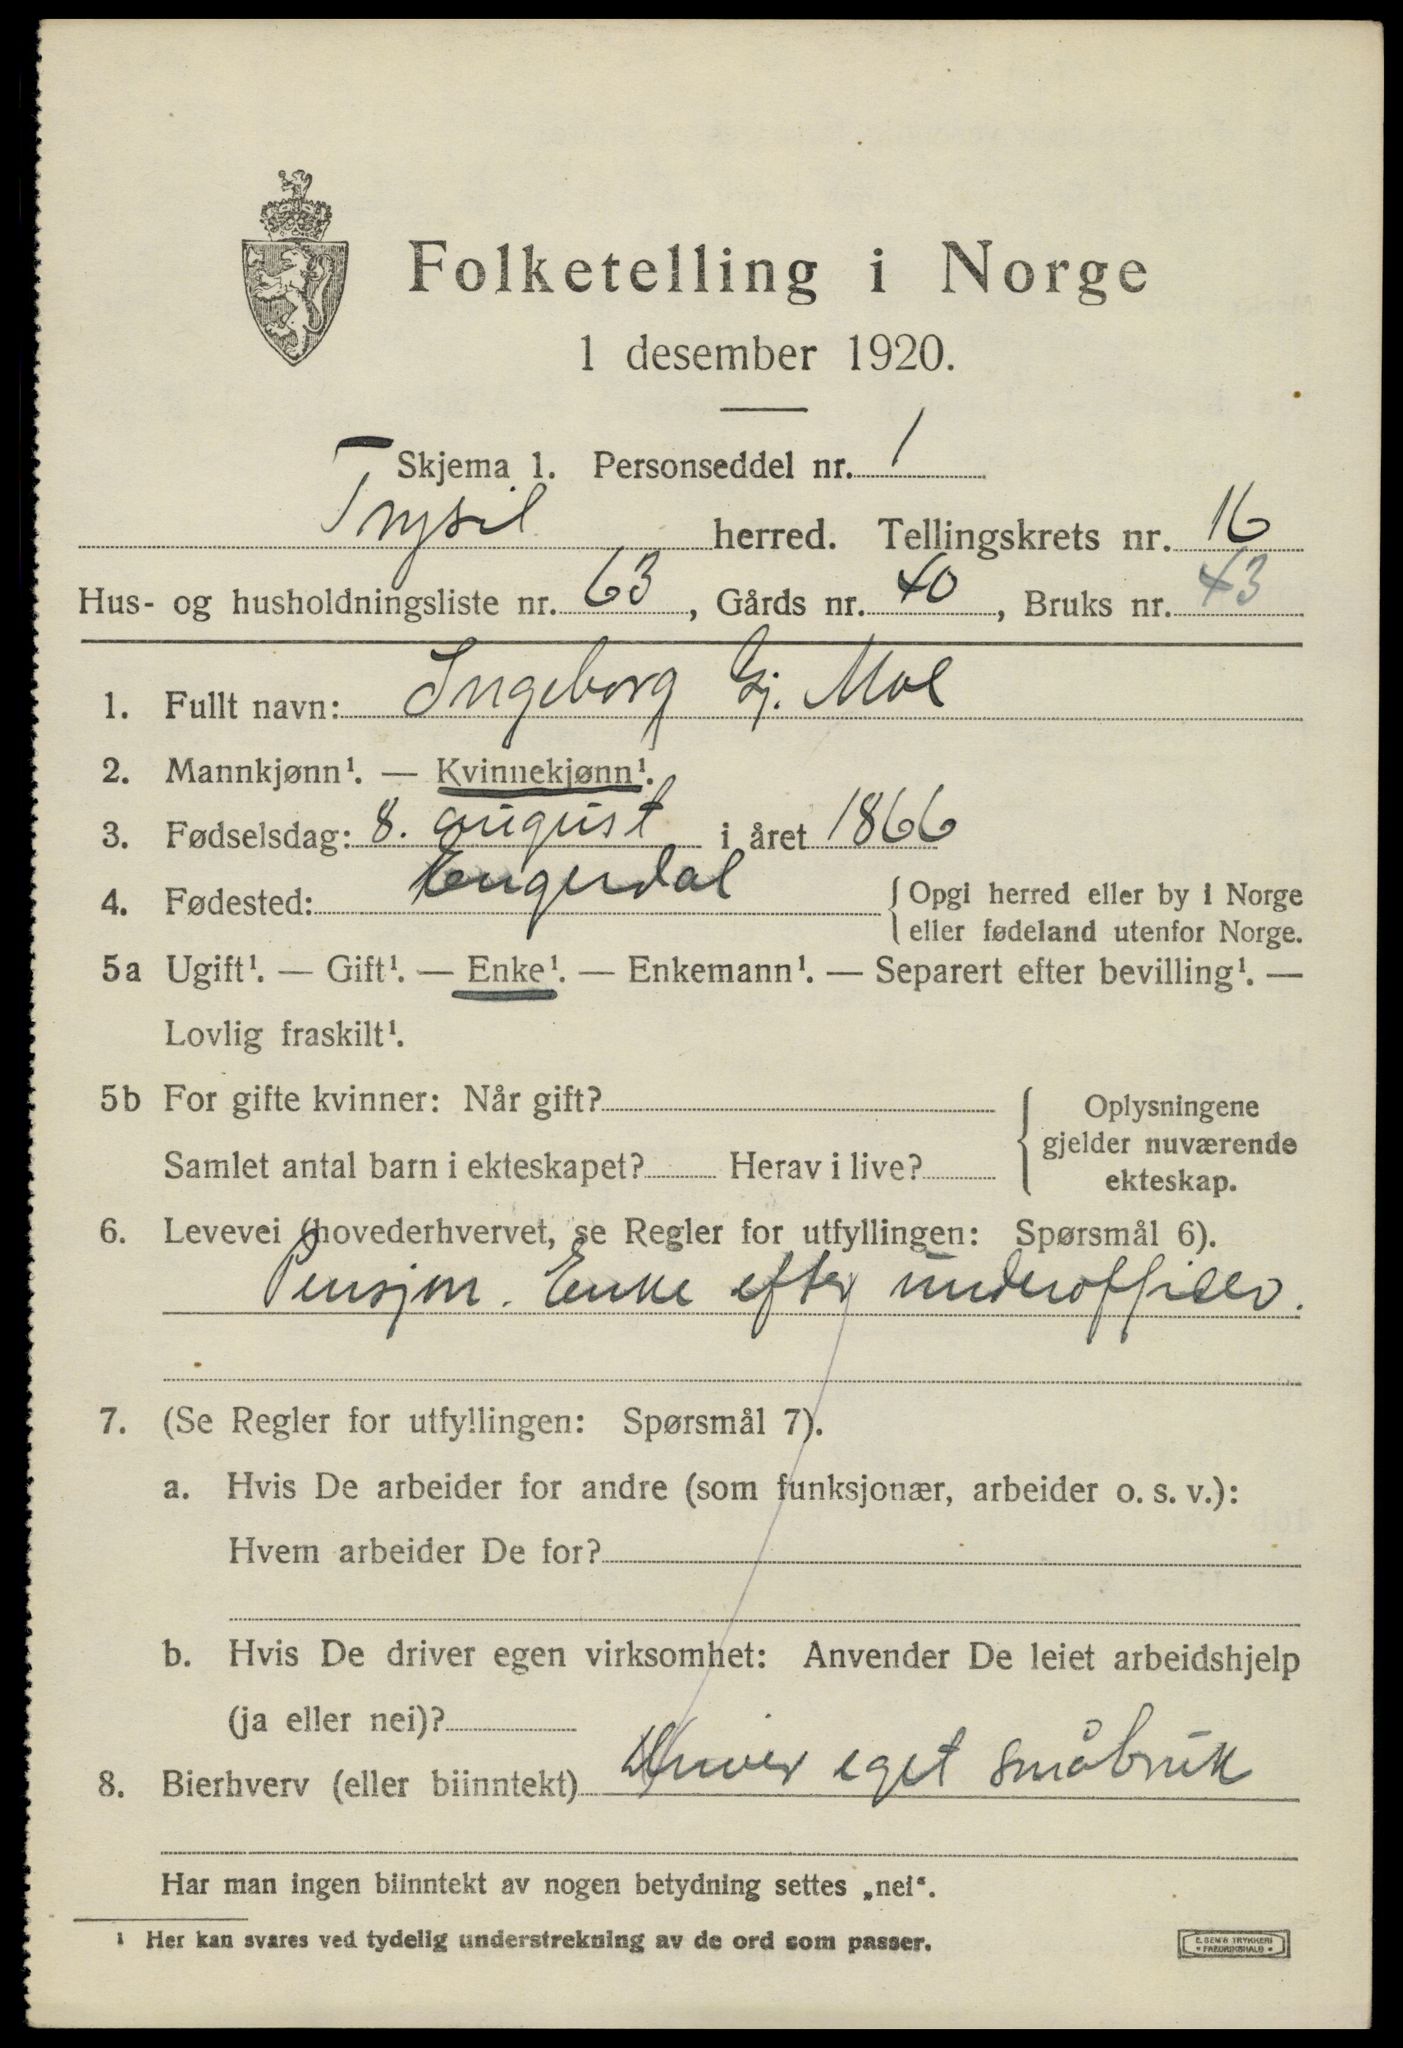 Folketelling i Norge
1 desember 1920.
Skjema 1. Personseddel nr. 1
Trysil herred. Tellingskrets nr. 16
Hus- og husholdningsliste nr. 63, Gårds nr. 40, Bruks nr. 43
1. Fullt navn: Ingeborg Gj. Moe
2. Mannkjønn¹. — Kvinnekjønn¹.
3. Fødselsdag: 8. august i året 1866
4. Fødested: Engerdal { Opgi herred eller by i Norge
eller fødeland utenfor Norge.
5a Ugift¹. — Gift¹. — Enke¹. — Enkemann¹. — Separert efter bevilling¹. —
Lovlig fraskilt¹.
5b For gifte kvinner: Når gift? { Oplysningene
gjelder nuværende
Samlet antal barn i ekteskapet? Herav i live? ekteskap.
6. Levevei (hovederhvervet, se Regler for utfyllingen: Spørsmål 6).
Pensjon. Enke efter underofficer.
7. (Se Regler for utfyllingen: Spørsmål 7).
a. Hvis De arbeider for andre (som funksjonær, arbeider o. s. v.):
Hvem arbeider De for?
b. Hvis De driver egen virksomhet: Anvender De leiet arbeidshjelp
(ja eller nei)?
8. Bierhverv (eller biinntekt) Driver eget småbruk
Har man ingen biinntekt av nogen betydning settes „nei“.
¹ Her kan svares ved tydelig understrekning av de ord som passer.
E. SEM'S TRYKKERI
• FREDRIKSHALD •